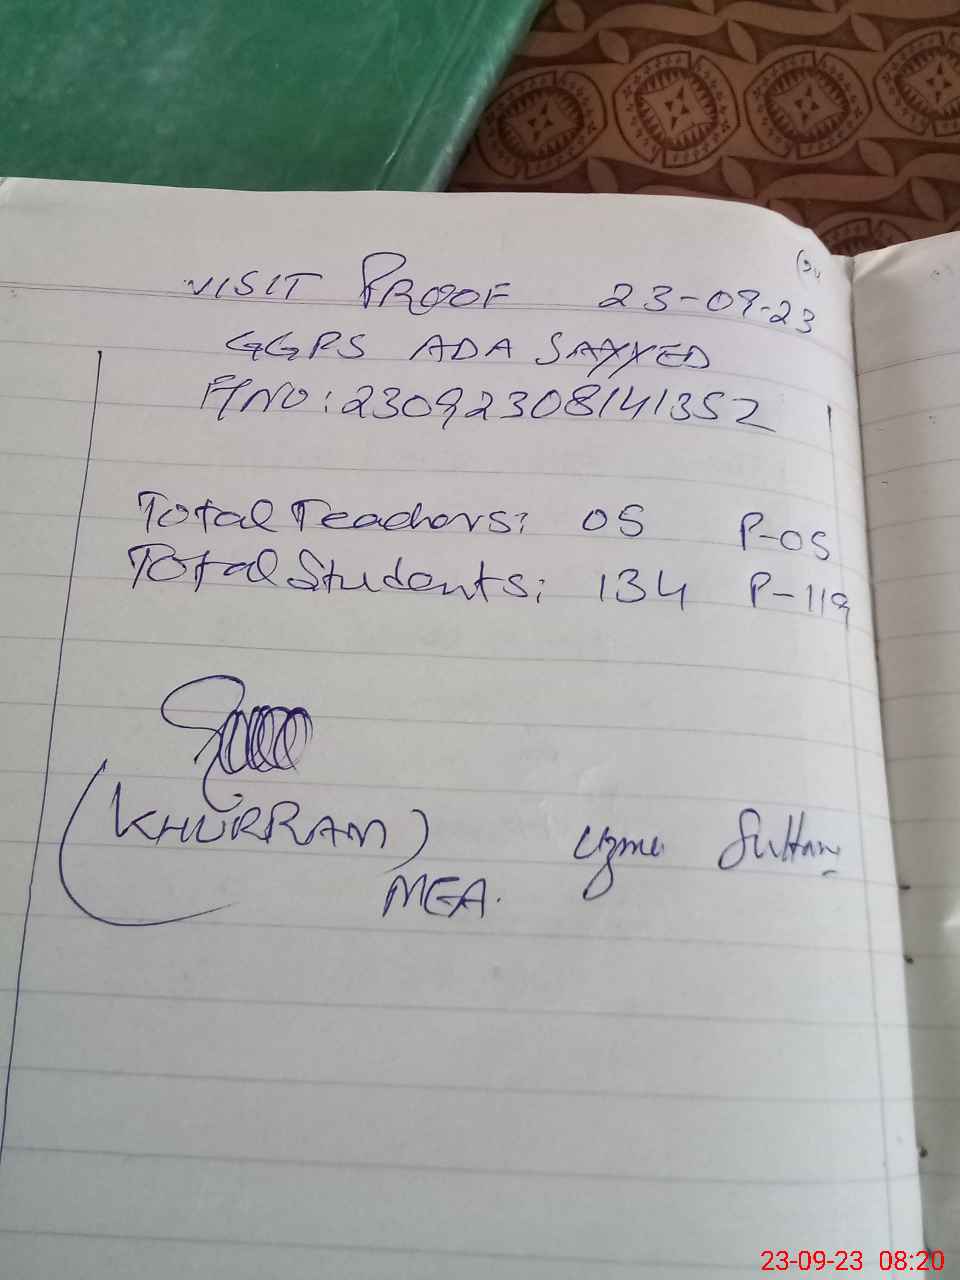 VISIT PROOF 23-09-23
GGPS ADA SAYYED
P/NO: 23092308141352
Total Teachers: 05 P-05
Total Students: 134 P-119
(KHURRAM)
MEA.
Uzma Sultana
23-09-23 08:20